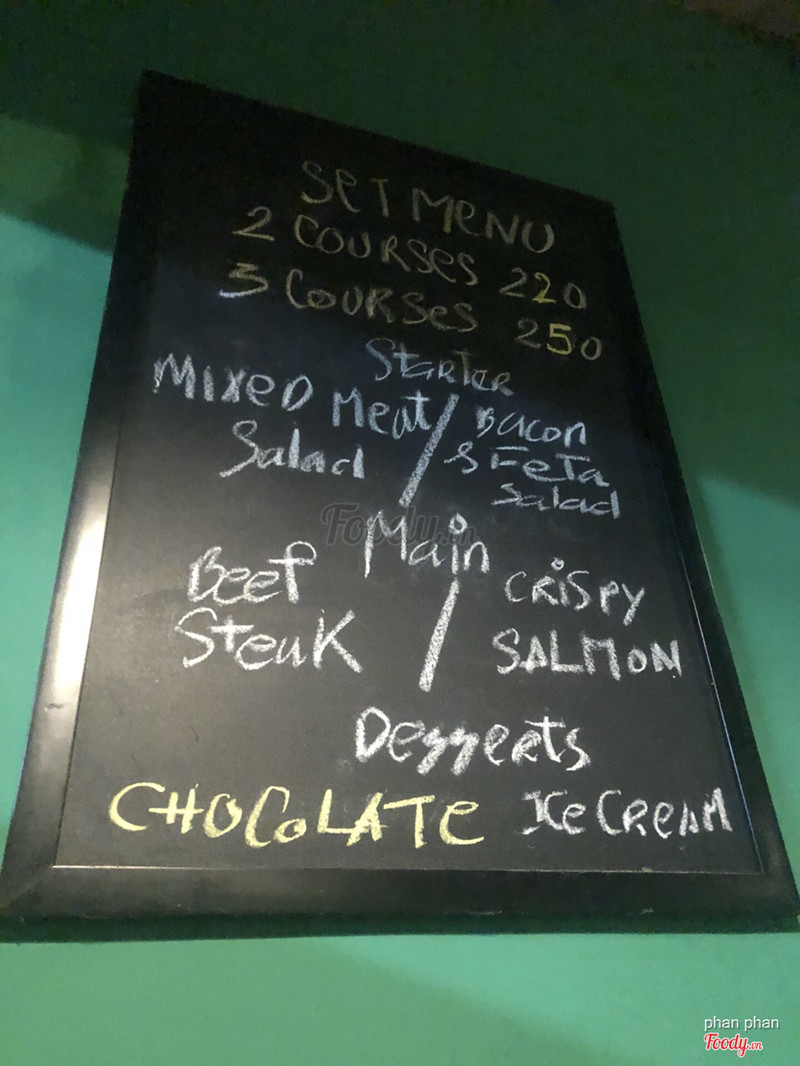 SeT MeNU
2 COURSes 220
3 COURSes 250
Starter
Mixed Meat / Bacon
Salad & FeTa
Salad
Foody.vn
Main
Beef / CRiSPY
Steak SALMON
Desserts
CHOCOLATe Ice CReAM
phan phan
Foody.vn